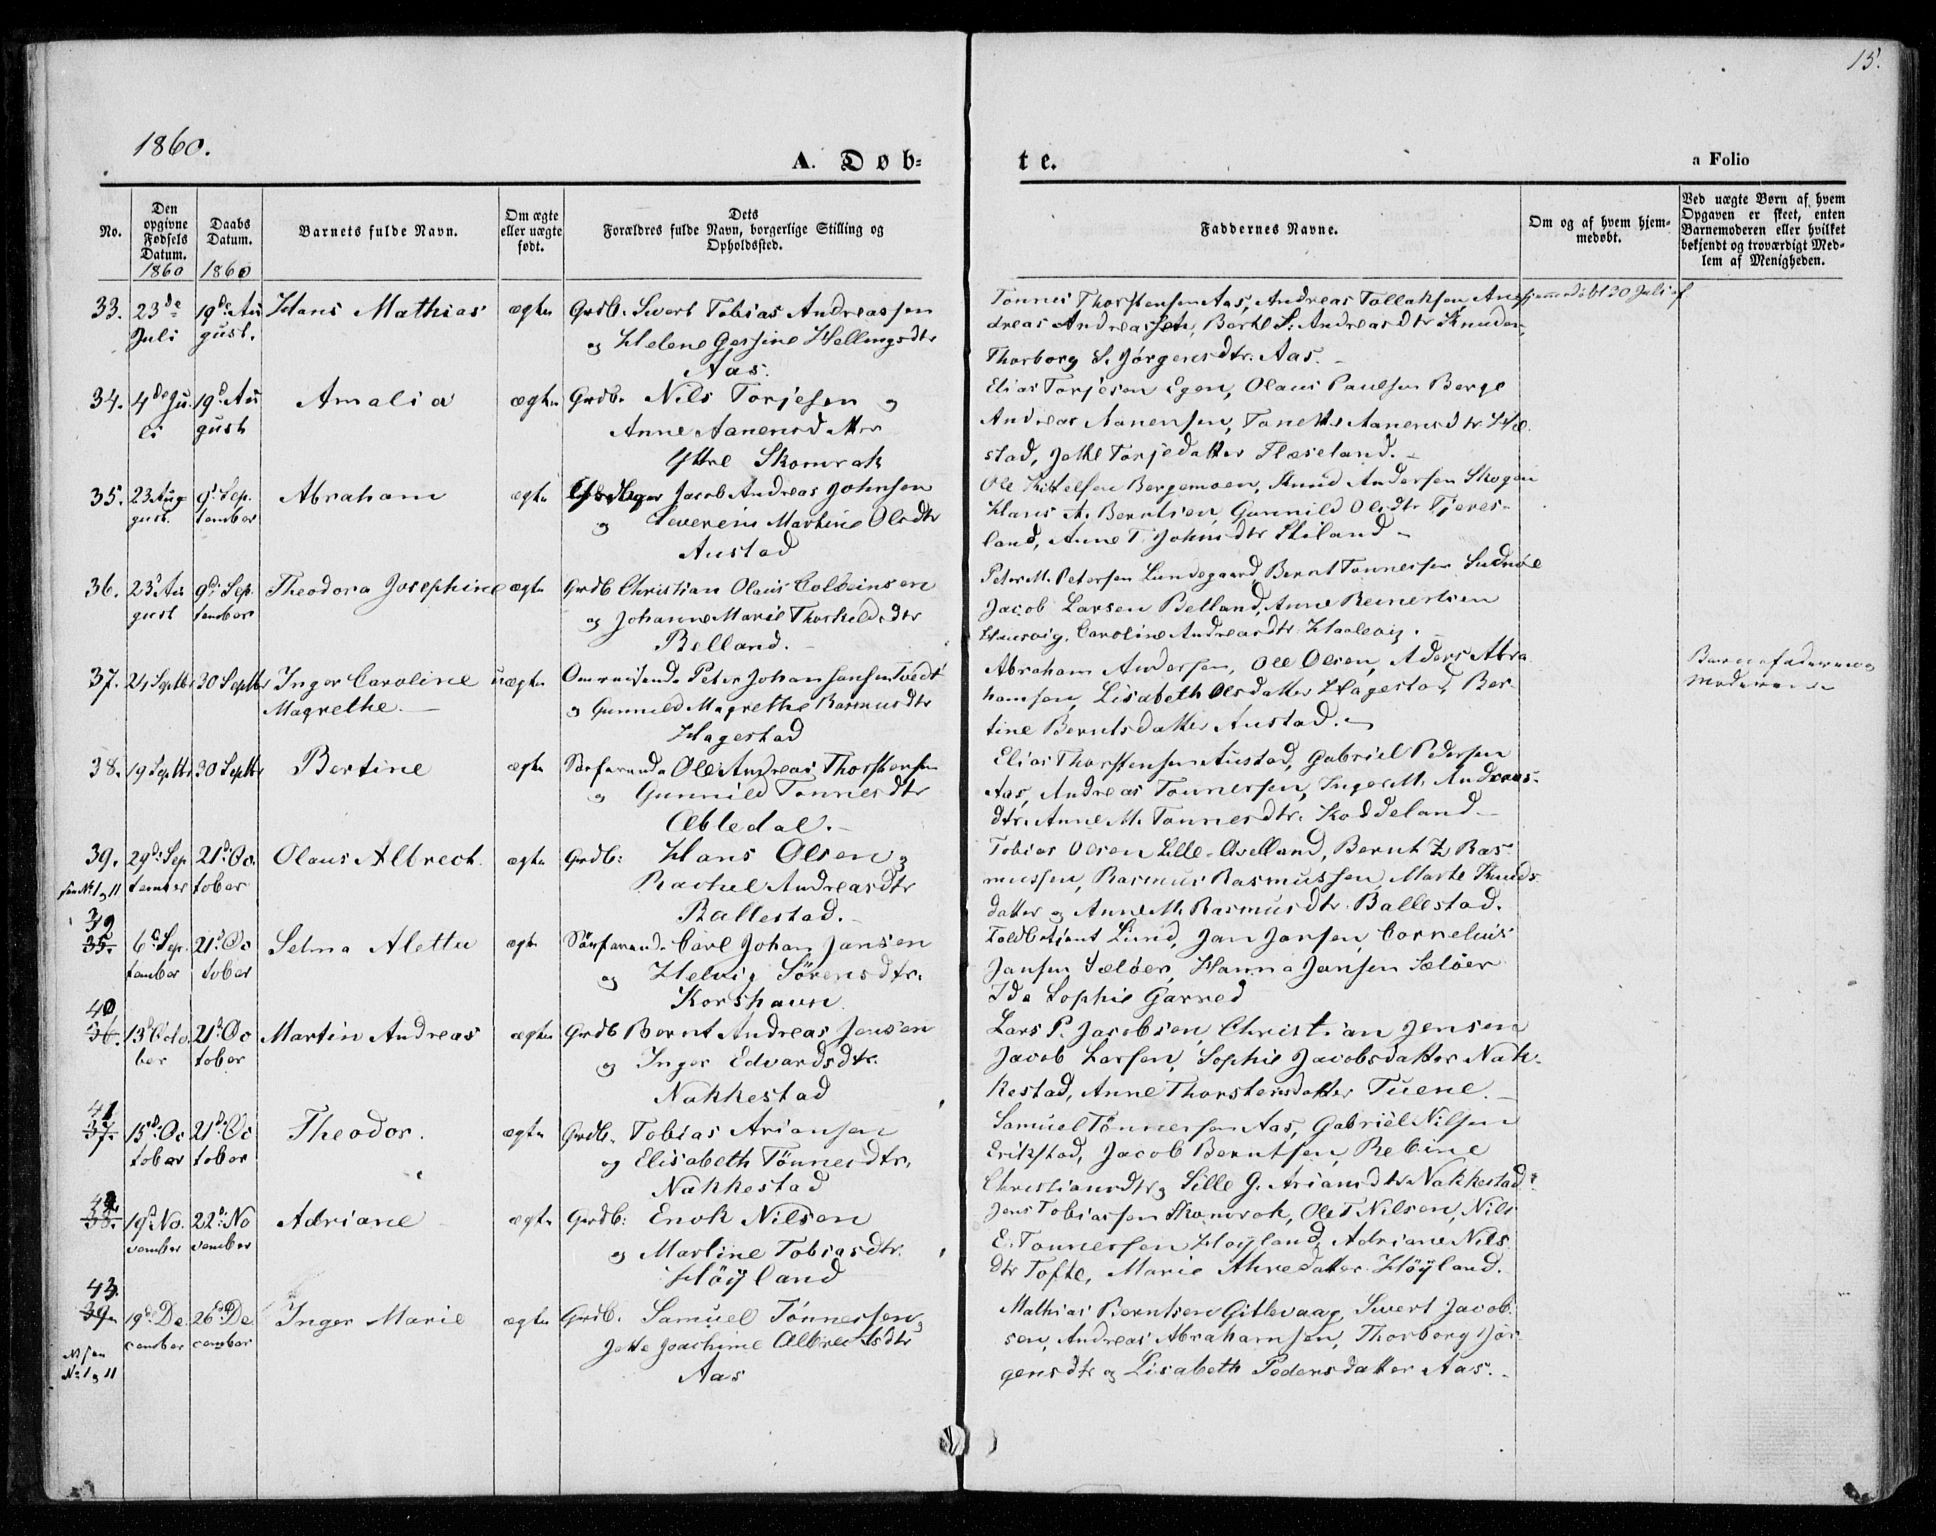 15.
1860.
A. Døb-
te.
a Folio
No.
Den opgivne Fødsels Datum.
1860
Daabs Datum.
1860
Barnets fulde Navn.
Om ægte eller uægte født.
Dets
Forældres fulde Navn, borgerlige Stilling og
Opholdssted.
Faddernes Navne.
Om og af hvem hjem-
medøbt.
Ved uægte Børn af hvem
Opgaven er skeet, enten
Barnemoderen eller hvilket
bekjendt og troværdigt Med-
lem af Menigheden.
33. 23de Juli 19de August. Hans Mathias ægte Grdb. Sivert Tobias Andreassen
og Helene Gessine Hellingsdtr
Aas.
Tønnes Thorstensen Aas, Andreas Tallaksen, An-
dreas Andreassen, Berte S. Andreasdtr Knuden,
Thorborg S. Jørgensdtr. Aas.
Hjemmedøbt 30 Juli af
34. 4de Juli 19d August Amalia ægte Grdb. Nils Torjesen og
Anne Aanensdatter
Yttre Skomrak
Elias Torjesen Egen, Olaus Paulsen Berge
Andreas Aanensen, Tanette Aanensdtr
stad, Jette Torjedatter Flæseland.
35. 23 August 9d September Abraham ægte Jacob Andreas Johnsen
og Severine Martine Olsdtr
Austad
Ole Kittelsen Bergemoen, Knud Andersen Skogen
Hans A. Berntsen, Gunnild Olsdtr Fjeres-
land, Anne T. Johnsdtr Skiland
36. 23d August 9d September Theodora Josephine ægte Grdb Christian Olaus Colbeinsen
og Johanne Marie Thorkildsdtr
Belland.
Peter M. Petersen Lundegaard, Bernt Tønnessen
Jacob Larsen Belland, Anne Reinertsen
Caroline Andreasdtr
37. 24 Septbr 30 Septbr Inger Caroline Magrethe. uægte Omreisende Peter Johan Jansen Tvedt
og Gunnild Magrethe Rasmusdtr
Hagestad
Abraham Andersen, Ole Olsen, Aders Abra
hamsen, Lisabeth Olsdatter Hagestad, Ber-
tine Berntsdatter Austad.
Barnefaderen og
Moderen
38. 19 Septbr 30 Septbr Bertine ægte Sørfarende Ole Andreas Thorstensen
og Gunnild Tønnesdtr
Æbledal.
Elias Thorstensen Austad, Gabriel Pedersen
Aas, Andreas Tønnessen, Inger M. Andreas-
dtr. Anne M. Tønnesdtr. Koddeland
39. 29d September 21d October Olaus Albrecht ægte Grdb: Hans Olsen og
Rachel Andreasdtr
Ballestad.
Tobias Olsen Lille-Qvelland, Bernt Z Ras-
mussen, Rasmus Rasmussen, Marte Knuds
datter og Anne M. Rasmusdtr. Ballestad.
No 1 og 11
32
35. 6d September 21d October Selma Alette ægte Søefarende Carl Johan Jansen
og Helvig Sørensdtr.
Korshavn
Toldbetjent Lund, Jan Jansen, Cornelius
Jansen Sæløer, Hanna Jansen Sæløer
Ida Sophie Garred
40
36. 13d October 21d October Martin Andreas ægte Grdb Bernt Andreas Jensen
og Inger Edvardsdtr.
Nakkestad
Lars P. Jacobsen, Christian Jensen
Jacob Larsen, Sophie Jacobsdatter Nak-
kestad, Anne Thorstensdatter Tuene.
41
37. 15d October 21d October Theodor. ægte Grdb. Tobias Ariansen
og Elisabeth Tønnesdtr.
Nakkestad
Samuel Tønnessen Aas, Gabriel Nilsen
Erikstad, Jacob Berntsen, Rebine
Christiansdtr og Sille G. Ariansdtr Nakkestad
42
38. 19d November 22d November Adriane ægte Grdb: Enok Nilsen
og Martine Tobiasdtr.
Høÿland
Jens Tobiassen Skomrak, Ole T Nilsen, Nils
E. Tønnessen Høÿland, Adriane Nils
dtr Tofte, Marie Høÿland.
43.
39. 19d December 26d December Inger Marie ægte Grdb. Samuel Tønnessen og
Jette Joachime Albrectsdtr
Aas
Mathias Berntsen Gitlevaag, Sivert Jacob-
sen, Andreas Abrahamsen, Thorborg Jør-
gensdtr og Lisabeth Pedersdatter Aas.
No 1 og 11